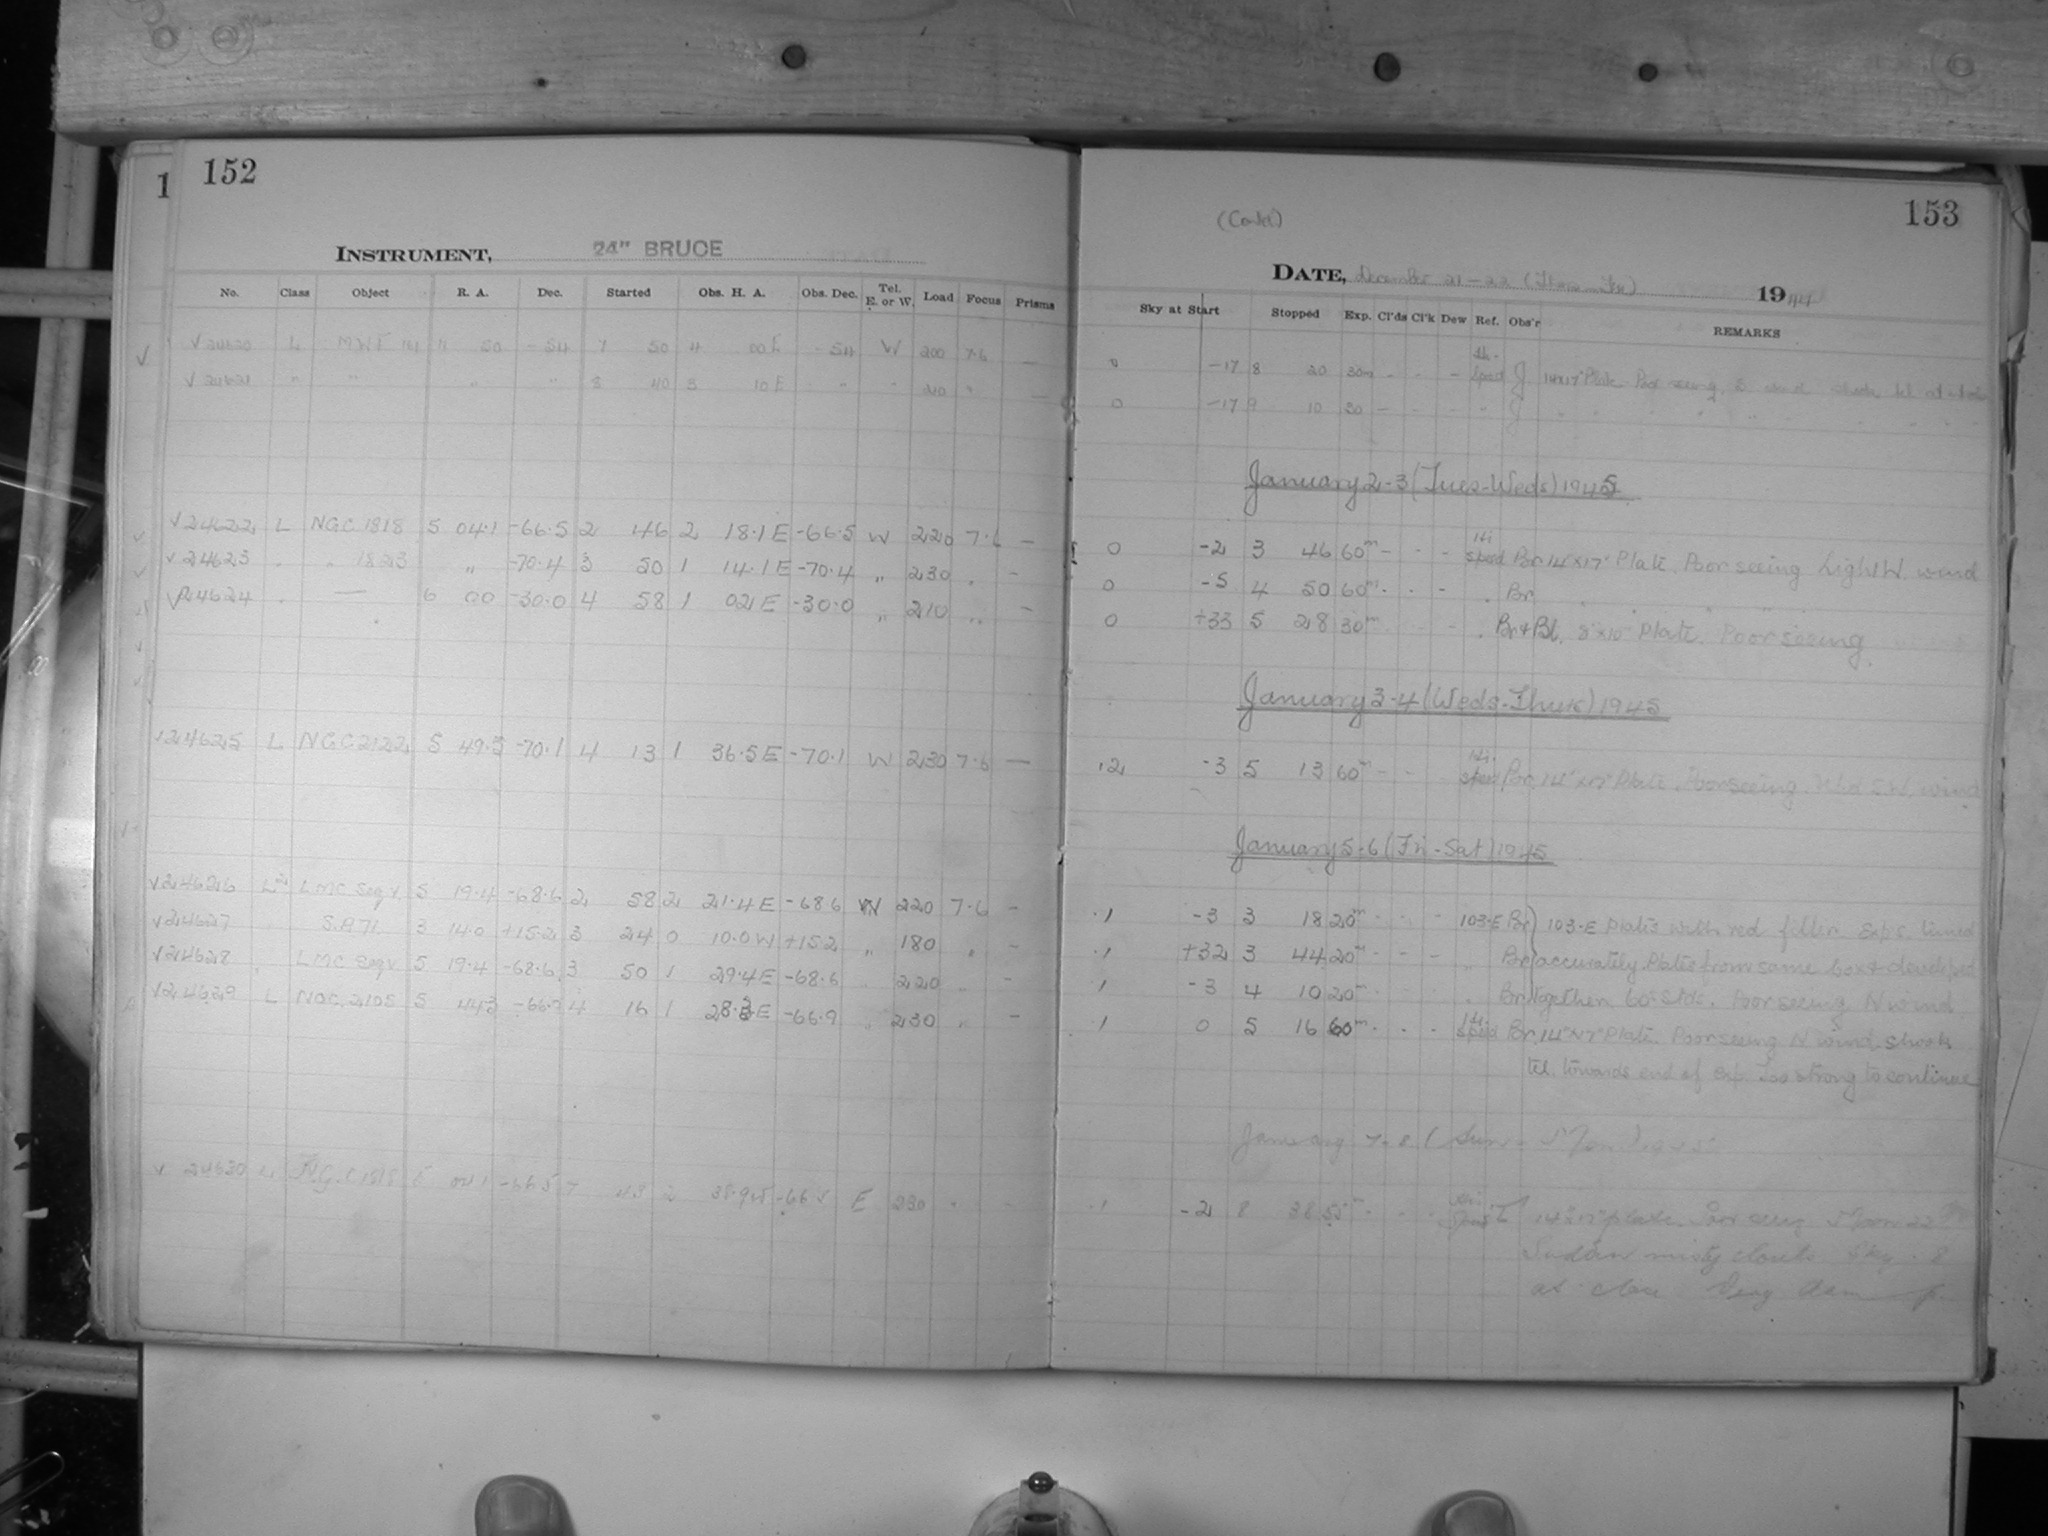 1 152
INSTRUMENT, 24" BRUCE
No. Class Object R. A. Dec. Started Obs. H. A. Obs. Dec. Tel. E. or W. Load Focus Prisms
√ 24620 L MWF 50 -54 7 50 4 00 E -54 W 200 7.6 —
√ 24621 " " " " 8 40 3 10 E " " 210 " —
√ 24622 L NGC 1818 5 04.1 -66.5 2 46 2 18.1 E -66.5 W 220 7.6 —
√ 24623 . " 1823 " -70.4 3 50 1 14.1 E -70.4 " 230 " -
√ 24624 . — 6 00 -30.0 4 58 1 02 E -30.0 " 210 " -
√ 24625 L NGC 2122 5 49.5 -70.1 4 13 1 36.5 E -70.1 W 230 7.6 —
√ 24626 L LMC Seq V 5 19.4 -68.6 2 58 2 21.4 E -68.6 W 220 7.6 -
√ 24627 S.A 71 3 14.0 +15.2 3 24 0 10.0 W +15.2 " 180 " -
√ 24628 . LMC Seq V 5 19.4 -68.6 3 50 1 29.4 E -68.6 . 220 " -
√ 24629 L NGC 2105 5 44.3 -66.9 4 16 1 28.3 E -66.9 " 230 " -
√ 24630 L N.G.C 1818 5 04.1 -66.5 7 43 2 38.9 W -66.5 E 230 " -
(Contd) 153
DATE, December 21-22 (Thurs-Fri) 1944
Sky at Start Stopped Exp. Cl'ds Cl'k Dew Ref. Obs'r REMARKS
0 -17 8 20 30m - - - Hi. Speed J 14x17" Plate Poor seeing. wind tel at
0 -17 9 10 30 - - - " J " " " "
January 2-3 (Tues-Weds) 1945
0 -2 3 46 60m - - - Hi Speed Br 14"x17" Plate. Poor seeing Light W. wind
0 -5 4 50 60m . . - . Br " " " "
0 +33 5 28 30m . Br + Bl. 8"x10" Plate. Poor seeing
January 3-4 (Weds-Thurs) 1945
.2 -3 5 13 60m - - - Hi. Speed Br. 14"x17" Plate. Poor seeing. Mod S.W. wind
January 5-6 (Fri-Sat) 1945
.1 -3 3 18 20m - - - 103-E Br 103-E plates with red filter. Exps. timed
.1 +32 3 44 20m - - - " Br accurately. Plates from same box & developed
.1 -3 4 10 20m - - - . Br together. 60° Stds. Poor seeing N wind.
.1 0 5 16 60m . . - Hi. Speed Br. 14"x17" Plate. Poor seeing N wind shook
tel. towards end of exp. Too strong to continue
January 7-8 (Sun-Mon) 1945
.1 -2 8 38 55m . . . Hi. Speed 14"x17" plate. Poor seeing Moon 22
Sudden misty clouds Sky .8
at close Very